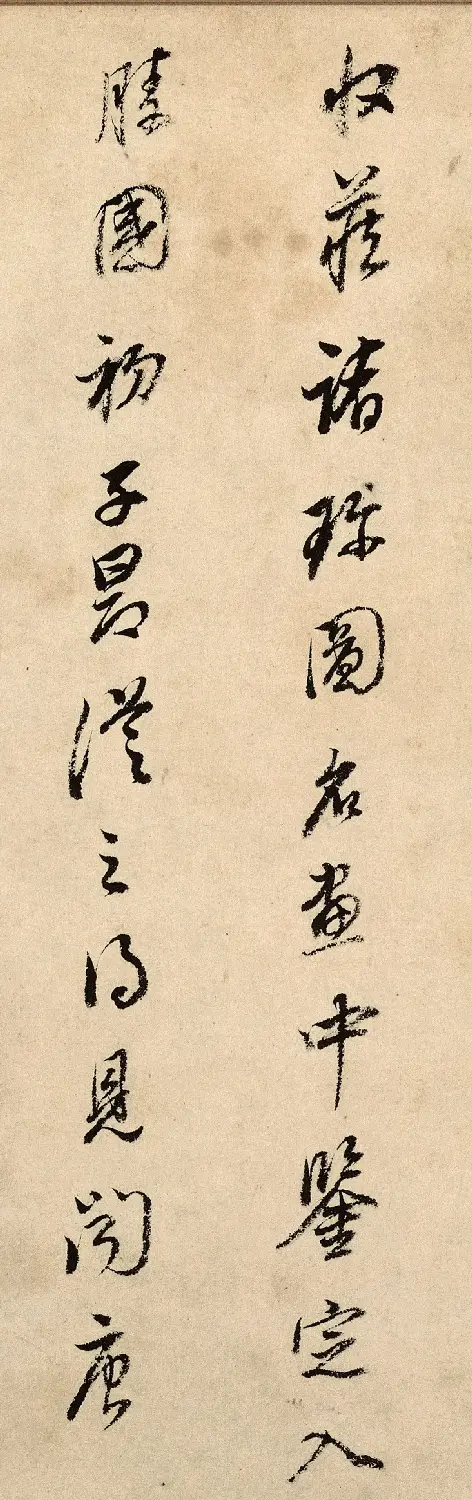 収藏諸珍圖名畫中鑒定入
勝國初子昂從之得見唐